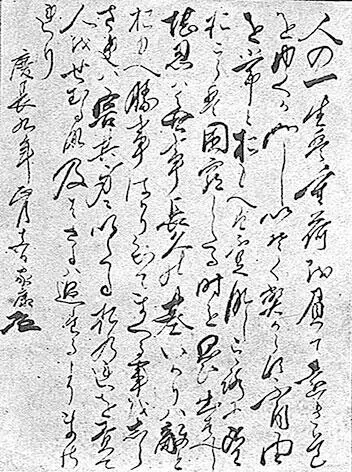 人の一生は重荷を負て遠き道
をゆくかことしいそくへからす不自由
を常とおもへは不足なしこゝろに望
おこらは困窮したる時を思ひ出すへし
堪忍は無事長久の基いかりは敵と
おもへ勝事はかり知てまくる事をしら
されは害其身にいたるおのれを責て
人をせむるな及はさるは過たるよりまさ
れり
慶長九年 正月 家康